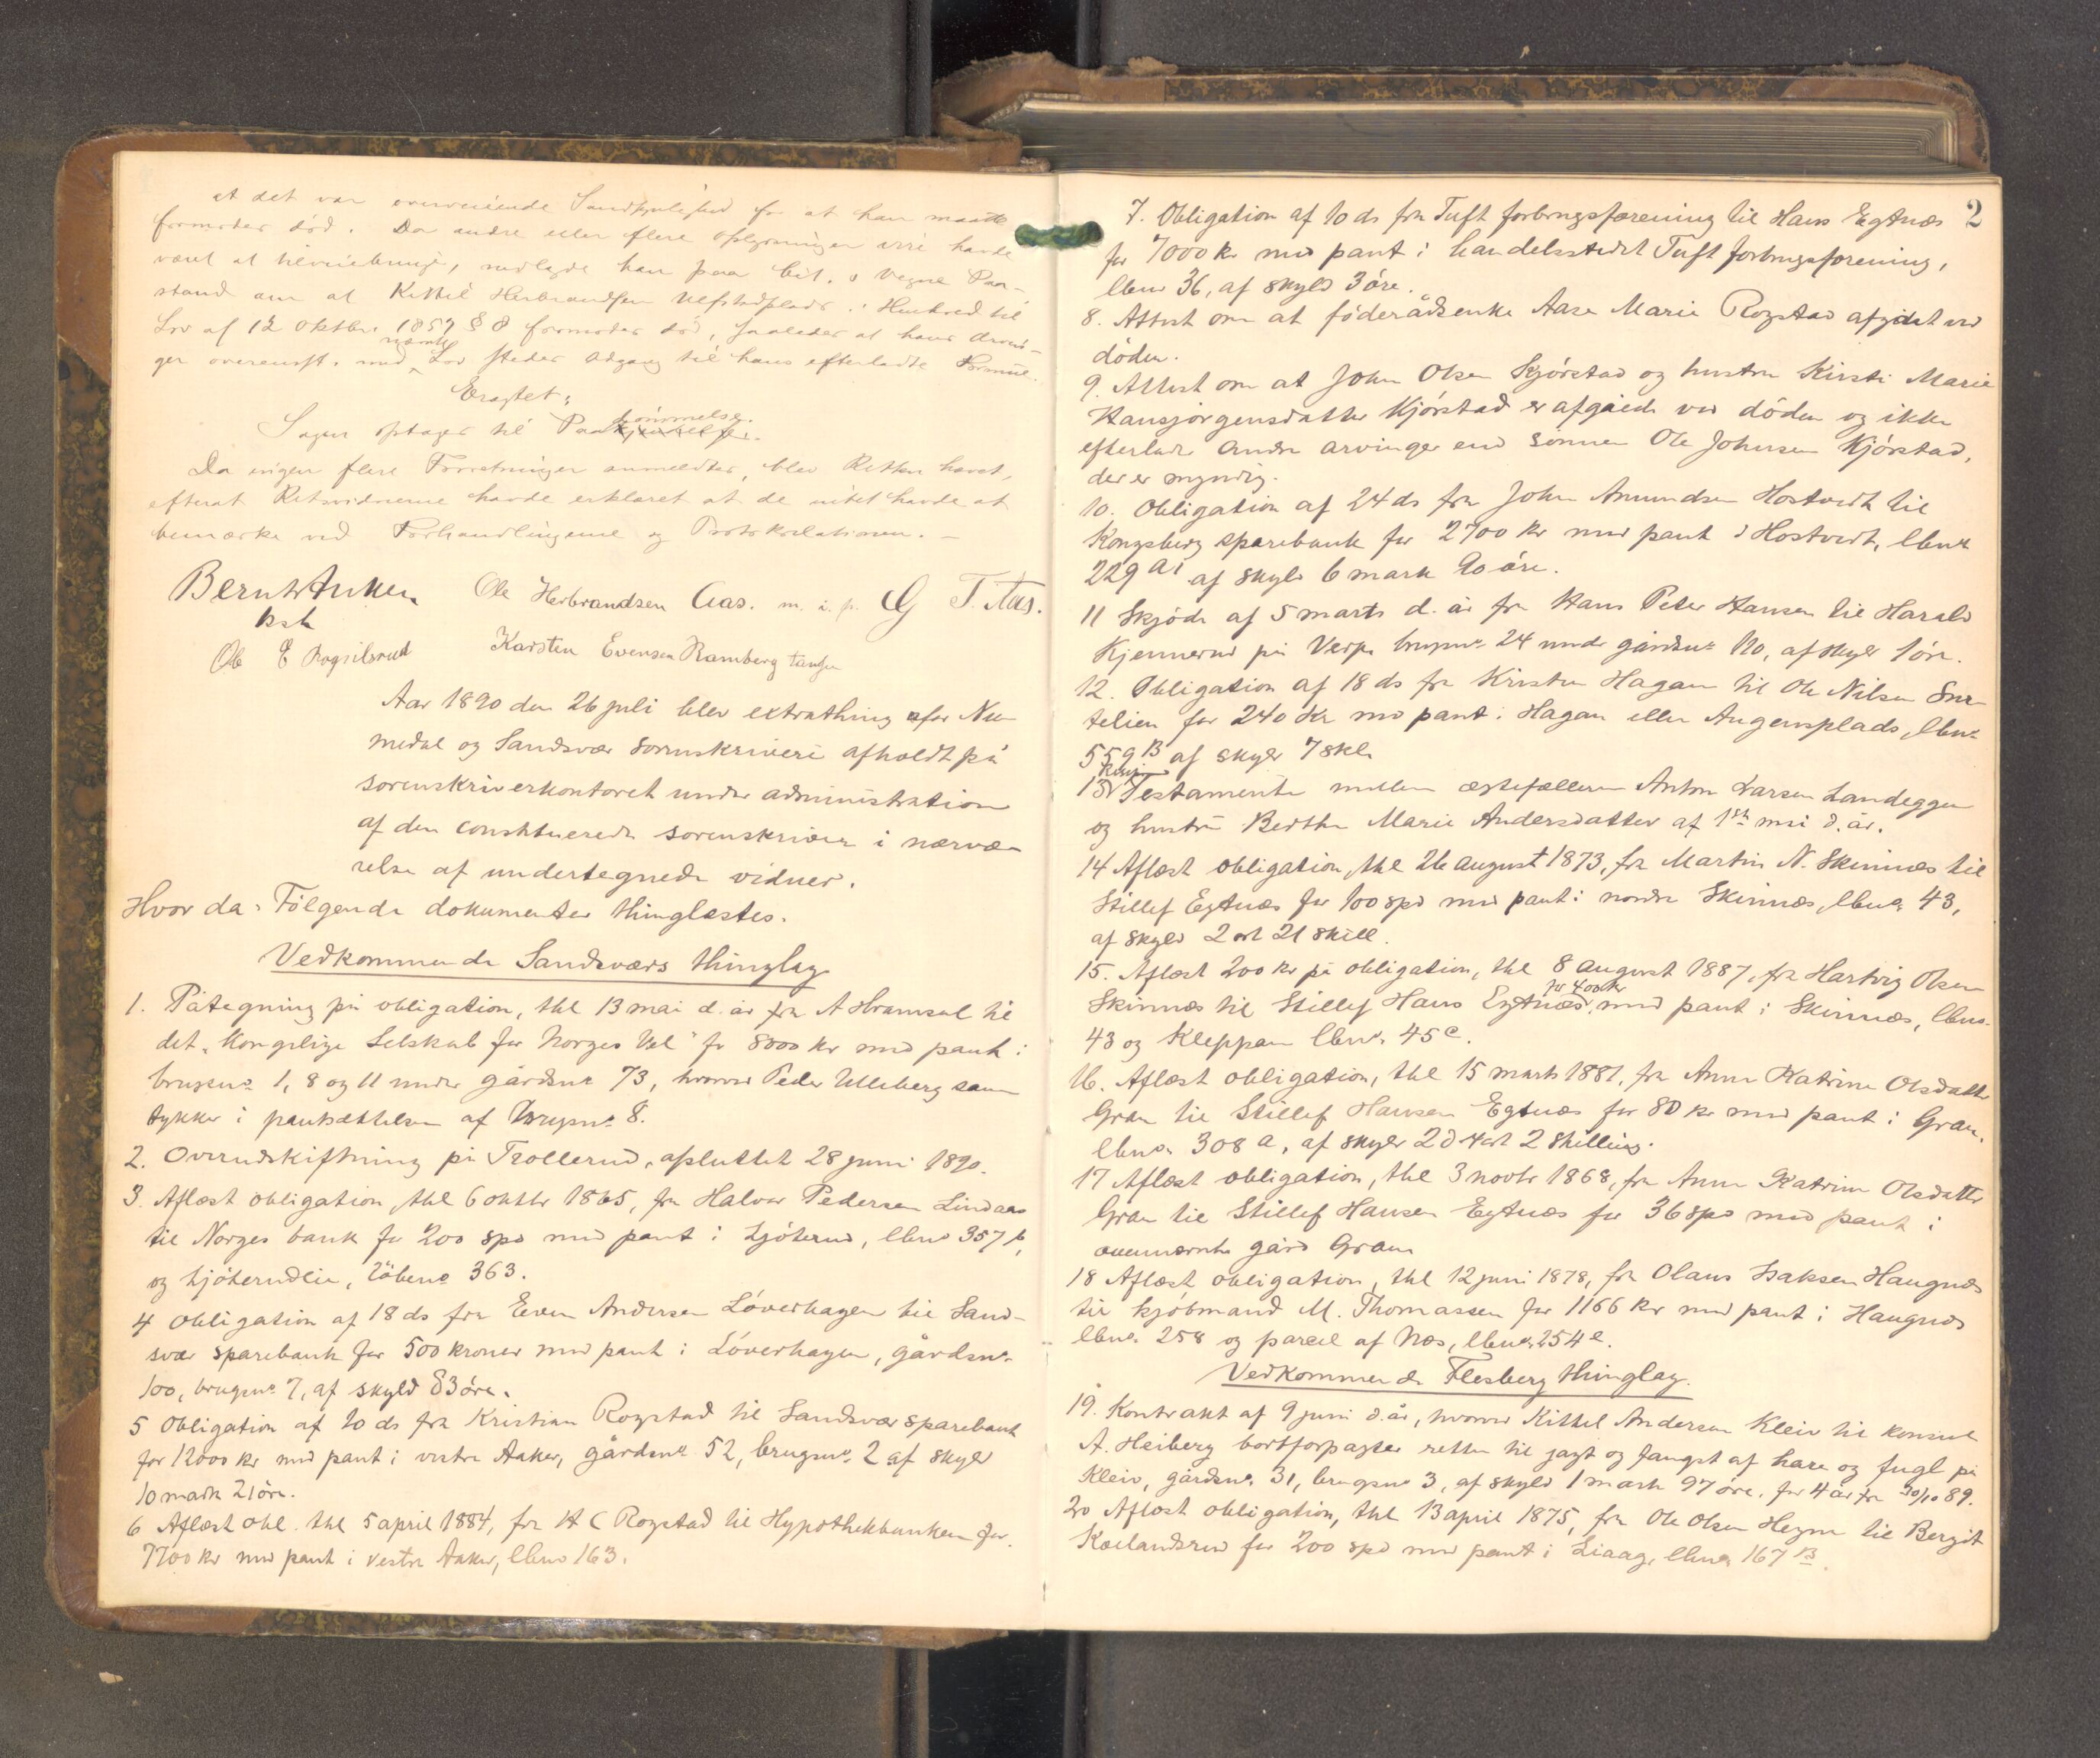 at det var overveiende Sandsynlighed for at han maatte
formodes død. Da andre eller flere Oplysninger ikke havde
været at tilveiebringe, nedlagde han paa Cit.s Vegne Paa-
stand om at Kittil Herbrandsen Ulfstadplads i Henhold til
Lov af 12 Oktbr. 1857 § 8 formodes død, saaledes at hans Arvin-
ger overensst. med nævnte Lov stedes Adgang til hans efterladte Formue.
Eragtet:
Sagen optages til Paakjendelse.
Da ingen flere Forretninger anmeldtes, blev Retten hævet,
efterat Retsvidnerne havde erklæret at de intet havde at
bemærke ved Forhandlingerne og Protokollationen. –
Bernt Anker Ole Herbrandsen Aas. m. i. p. G T. Aas.
kst
Ole E Rogsilsrud Karsten Evensen Ramberg
Aar 1890 den 26 juli blev extrathing for Nu-
medal og Sandsvær sorenskriveri afholdt på
sorenskriverkontoret under administration
af den constituerede sorenskriver i nærvæ-
relse af undertegnede vidner.
Hvor da: Følgende dokumenter thinglæstes.
Vedkommende Sandsværs thinglag
1. Påtegning på obligation, thl 13 mai d. år fra A Hramsel til
det „Kongelige Selskab for Norges Vel" for 8000 kr med pant i
brugsno 1, 8 og 11 under gårdsno 73, hvorved Peder Ulleberg sam-
tykker i pantsættelsen af brugsno 8.
2. Overudskiftning på Trollerud, afsluttet 28 juni 1890.
3. Aflæst obligation, thl 6 oktbr 1865, fra Halvor Pedersen Lindaas
til Norges bank for 200 spd med pant i Ljøterud, lbno 357 b,
og Ljøterudlia, løbeno 363.
4 Obligation af 18 ds fra Even Andersen Løverhagen til Sand-
svær sparebank for 500 kroner med pant i Løverhagen, gårdsno
100, brugsno 7, af skyld 83 øre.
5 Obligation af 10 ds fra Kristian Rogstad til Sandsvær sparebank
for 12000 kr med pant i vestre Aaker, gårdsno 52, brugsno 2 af skyld
10 mark 21 øre.
6 Aflæst obl. thl 5 april 1884, fra H C Rogstad til Hypothekbanken for
7700 kr med pant i vestre Aaker, lbno 163.
2
7. Obligation af 10 ds fra Tuft forbrugsforening til Hans Egtnæs
for 7000 kr med pant i handelsstedet Tuft forbrugsforening,
lbno 36, af skyld 3 øre.
8. Attest om at føderådsenke Aase Marie Rogstad afgidt ved
døden.
9. Attest om at John Olsen Kjørstad og hustru Kirsti Marie
Hansjørgensdatter Kjørstad er afgåede ved døden og ikke
efterlader andre arvinger end sønnen Ole Johnsen Kjørstad,
der er myndig.
10. Obligation af 24 ds fra John Amundsen Hostvedt til
Kongsberg sparebank for 2700 kr med pant i Hostvedt, lbno
229 a1 af skyld 6 mark 90 øre.
11 Skjøde af 5 marts d. år fra Hans Peter Hansen til Harald
Kjennerud på Verp, brugsno 24 under gårdsno 120, af skyld 1 øre.
12. Obligation af 18 ds fra Kristen Hagan til Ole Nilsen Sur-
telien for 240 kr med pant i Hagan eller Augensplads, lbno
559 B af skyld 7 skl.
13 Testamente mellem ægtefællerne Anton Larsen Landeggen
og hustru Berthe Marie Andersdatter af 1ste mai d. år.
14 Aflæst obligation, thl 26 august 1873, fra Martin N. Skinnæs til
Stillef Egtnæs for 100 spd med pant i nordre Skinnæs, lbno 43,
af skyld 2 ort 21 skill.
15. Aflæst 200 kr på obligation, thl 8 august 1887, fra Hartvig Olsen
Skinnæs til Stillef Hans Egtnæs for 400 kr med pant i Skinnæs, lbno
43 og Kleppan lbno 45 c.
16. Aflæst obligation, thl 15 marts 1881, fra Anne Katrine Olsdatter
Gran til Stillef Hansen Egtnæs for 80 kr med pant i Gran,
lbno 308 a, af skyld 2 d 4 ort 2 skilling.
17 Aflæst obligation, thl 3 novbr 1868, fra Anne Katrine Olsdatter
Gran til Stillef Hansen Egtnæs for 36 spd med pant i
ovennævnte gård Gran
18 Aflæst obligation, thl 12 juni 1878, fra Olaus Isaksen Haugnæs
til kjøbmand M. Thomassen for 1166 kr med pant i Haugnæs
lbno 258 og parcel af Næs, lbno 254 e.
Vedkommende Flesberg thinglag.
19. Kontrakt af 9 juni d. år, hvorved Kittel Andersen Kleiv til konsul
A. Heiberg bortforpagter retten til jagt og fangst af hare og fugl på
Kleiv, gårdsno 31, brugsno 3, af skyld 1 mark 97 øre, for 4 år fra 20/10 89.
20 Aflæst obligation, thl 13 april 1875, fra Ole Olsen Hegne til Bergit
Kælandsrud for 200 spd med pant i Liaag, lbno 167 B.